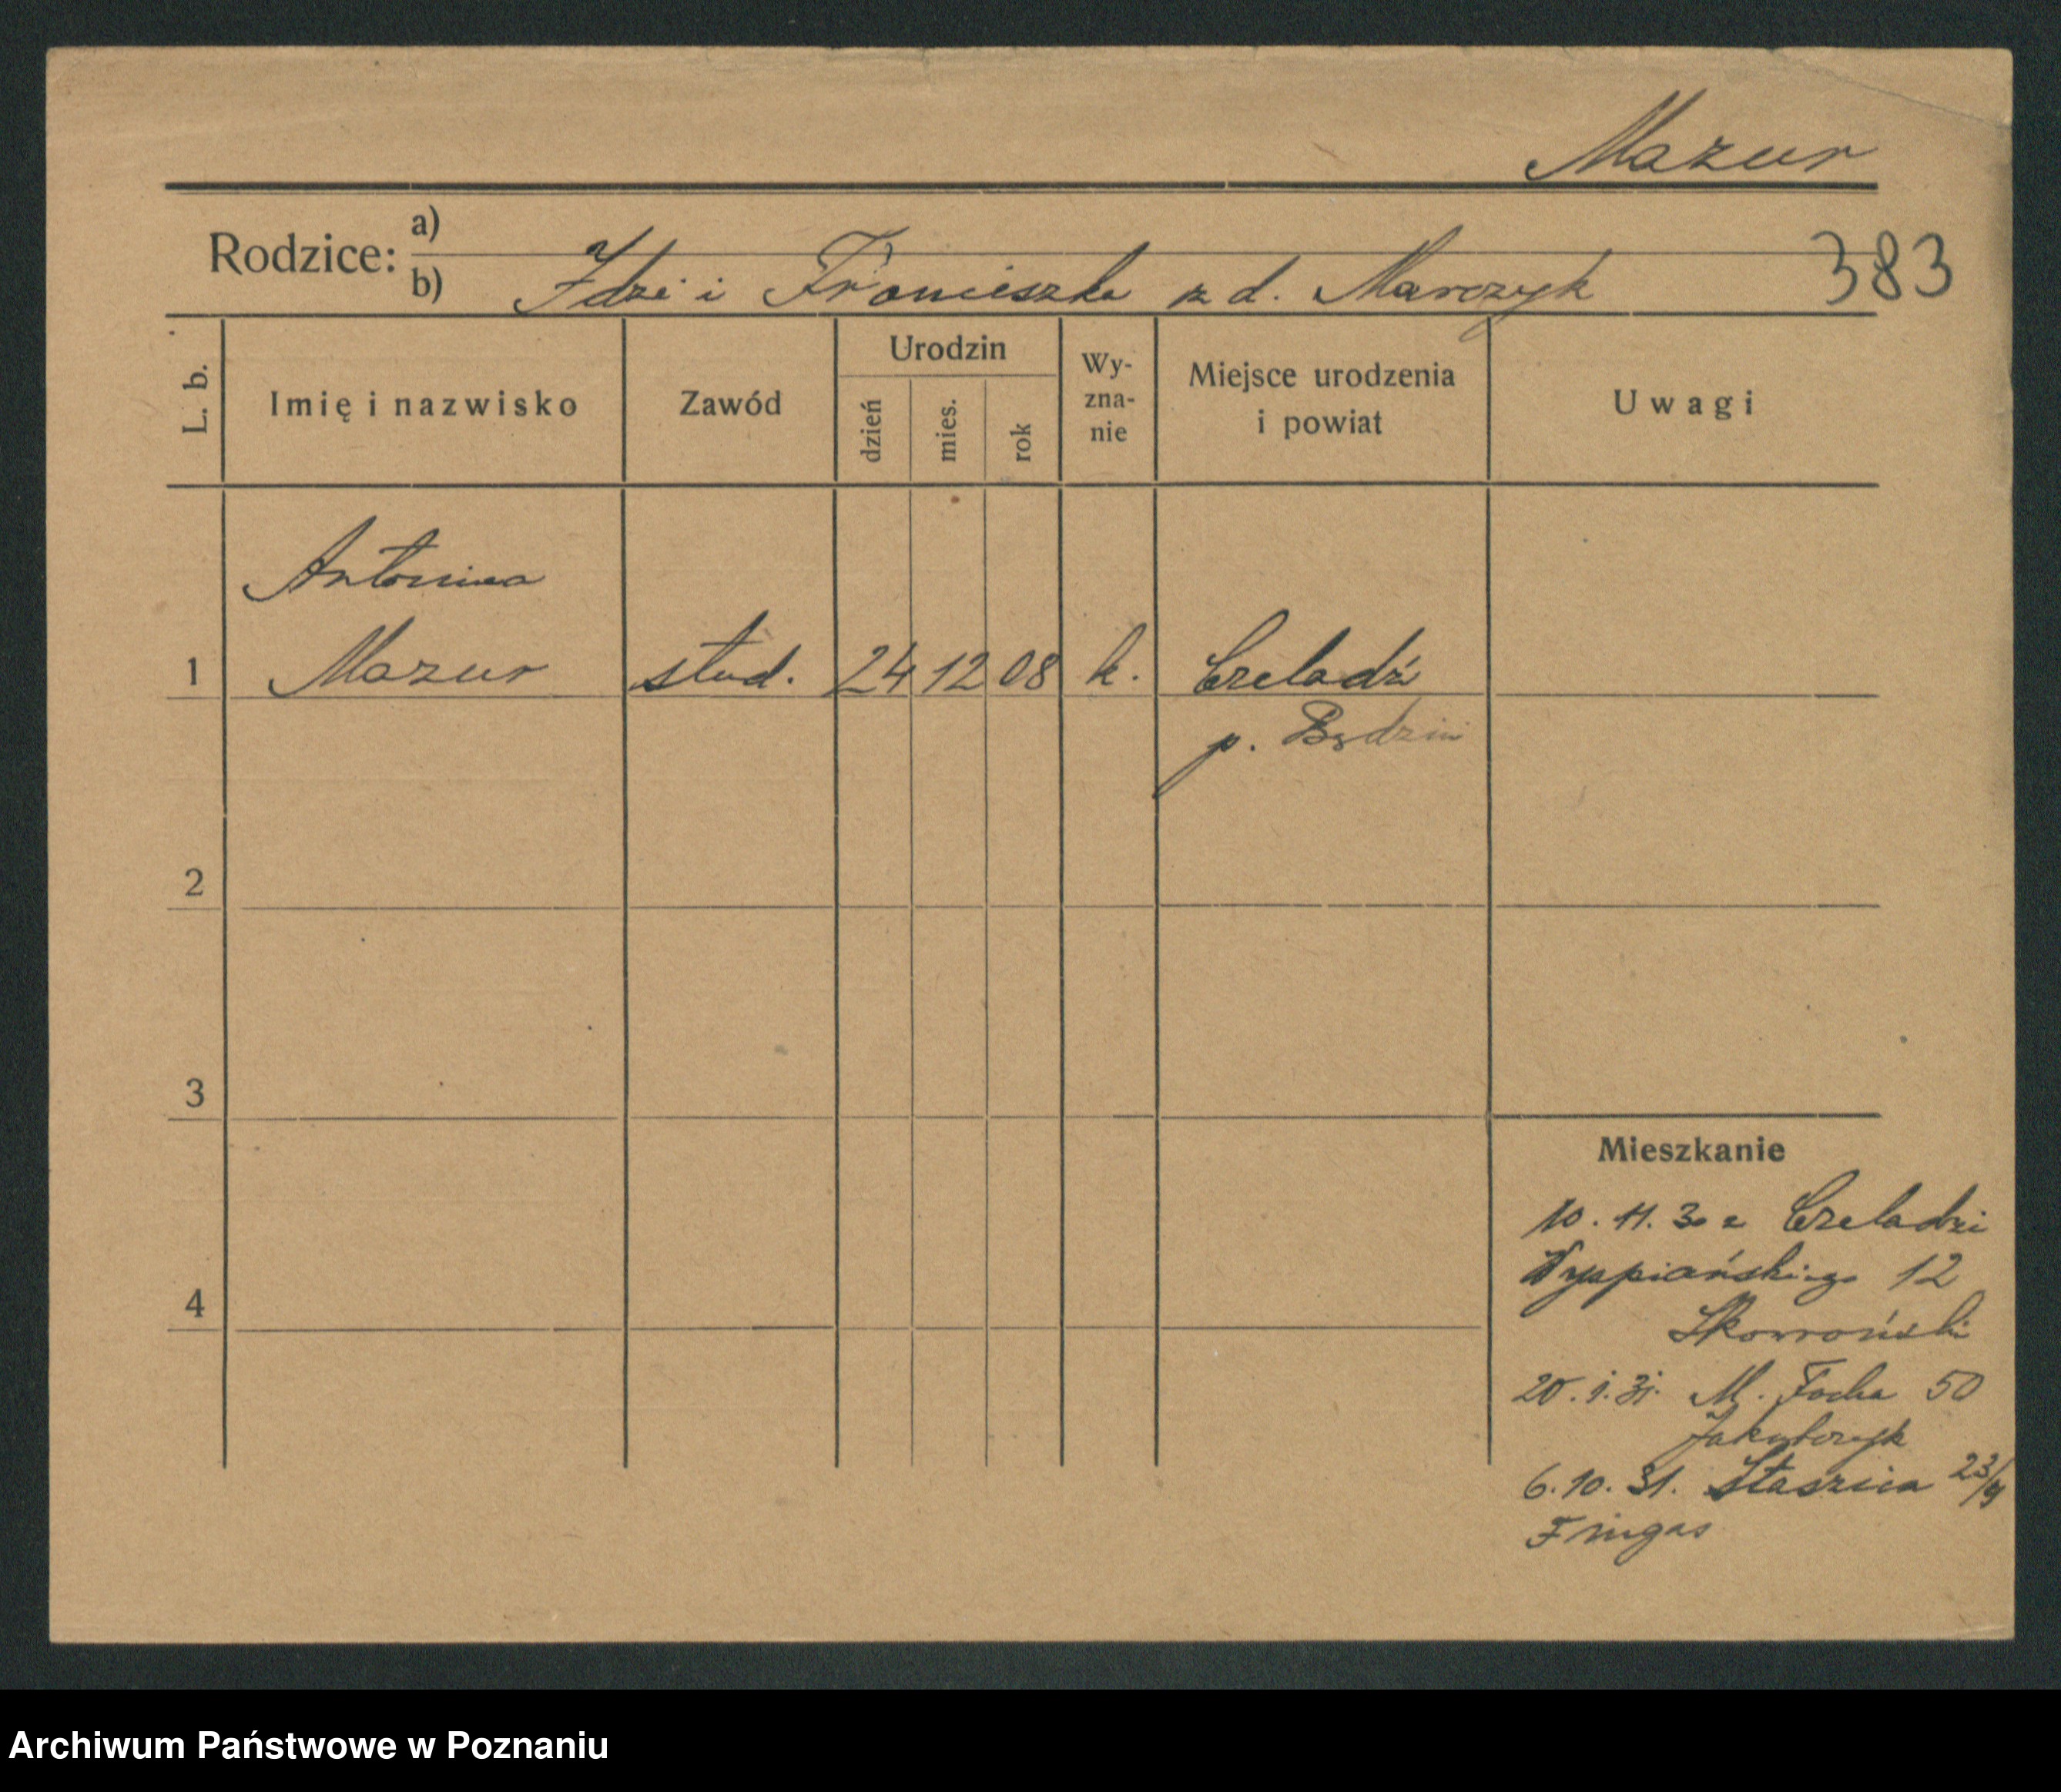 Mazur
Rodzice: a)
b) Idzi i Franciszka z d. Marczyk
383
L. b.
Imię i nazwisko
Zawód
Urodzin
dzień
mies.
rok
Wy-
zna-
nie
Miejsce urodzenia
i powiat
Uwagi
Antonina
1 Mazur stud. 24 12 08 k. Czeladź
p. Będzin
2
3
4
Mieszkanie
10. 11. 30 z Czeladzi
Wyspiańskiego 12
Skowroński
20. 1. 31. M. Focha 50
Jakubczyk
6. 10. 31. Staszica 23/
Fringas
Archiwum Państwowe w Poznaniu